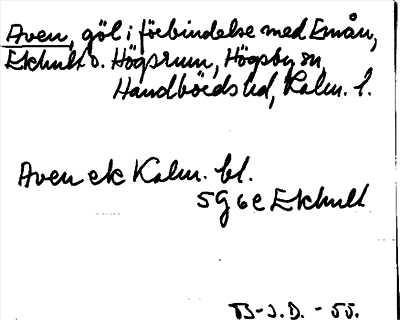 Aven, göl i förbindelse med Emån,
Ekhult o. Högsrum, Högsby sn,
Handbörds hd, Kalm. l.
Aven ek Kalm. bl.
5G 6e Ekhult
B-J.D. - 55.